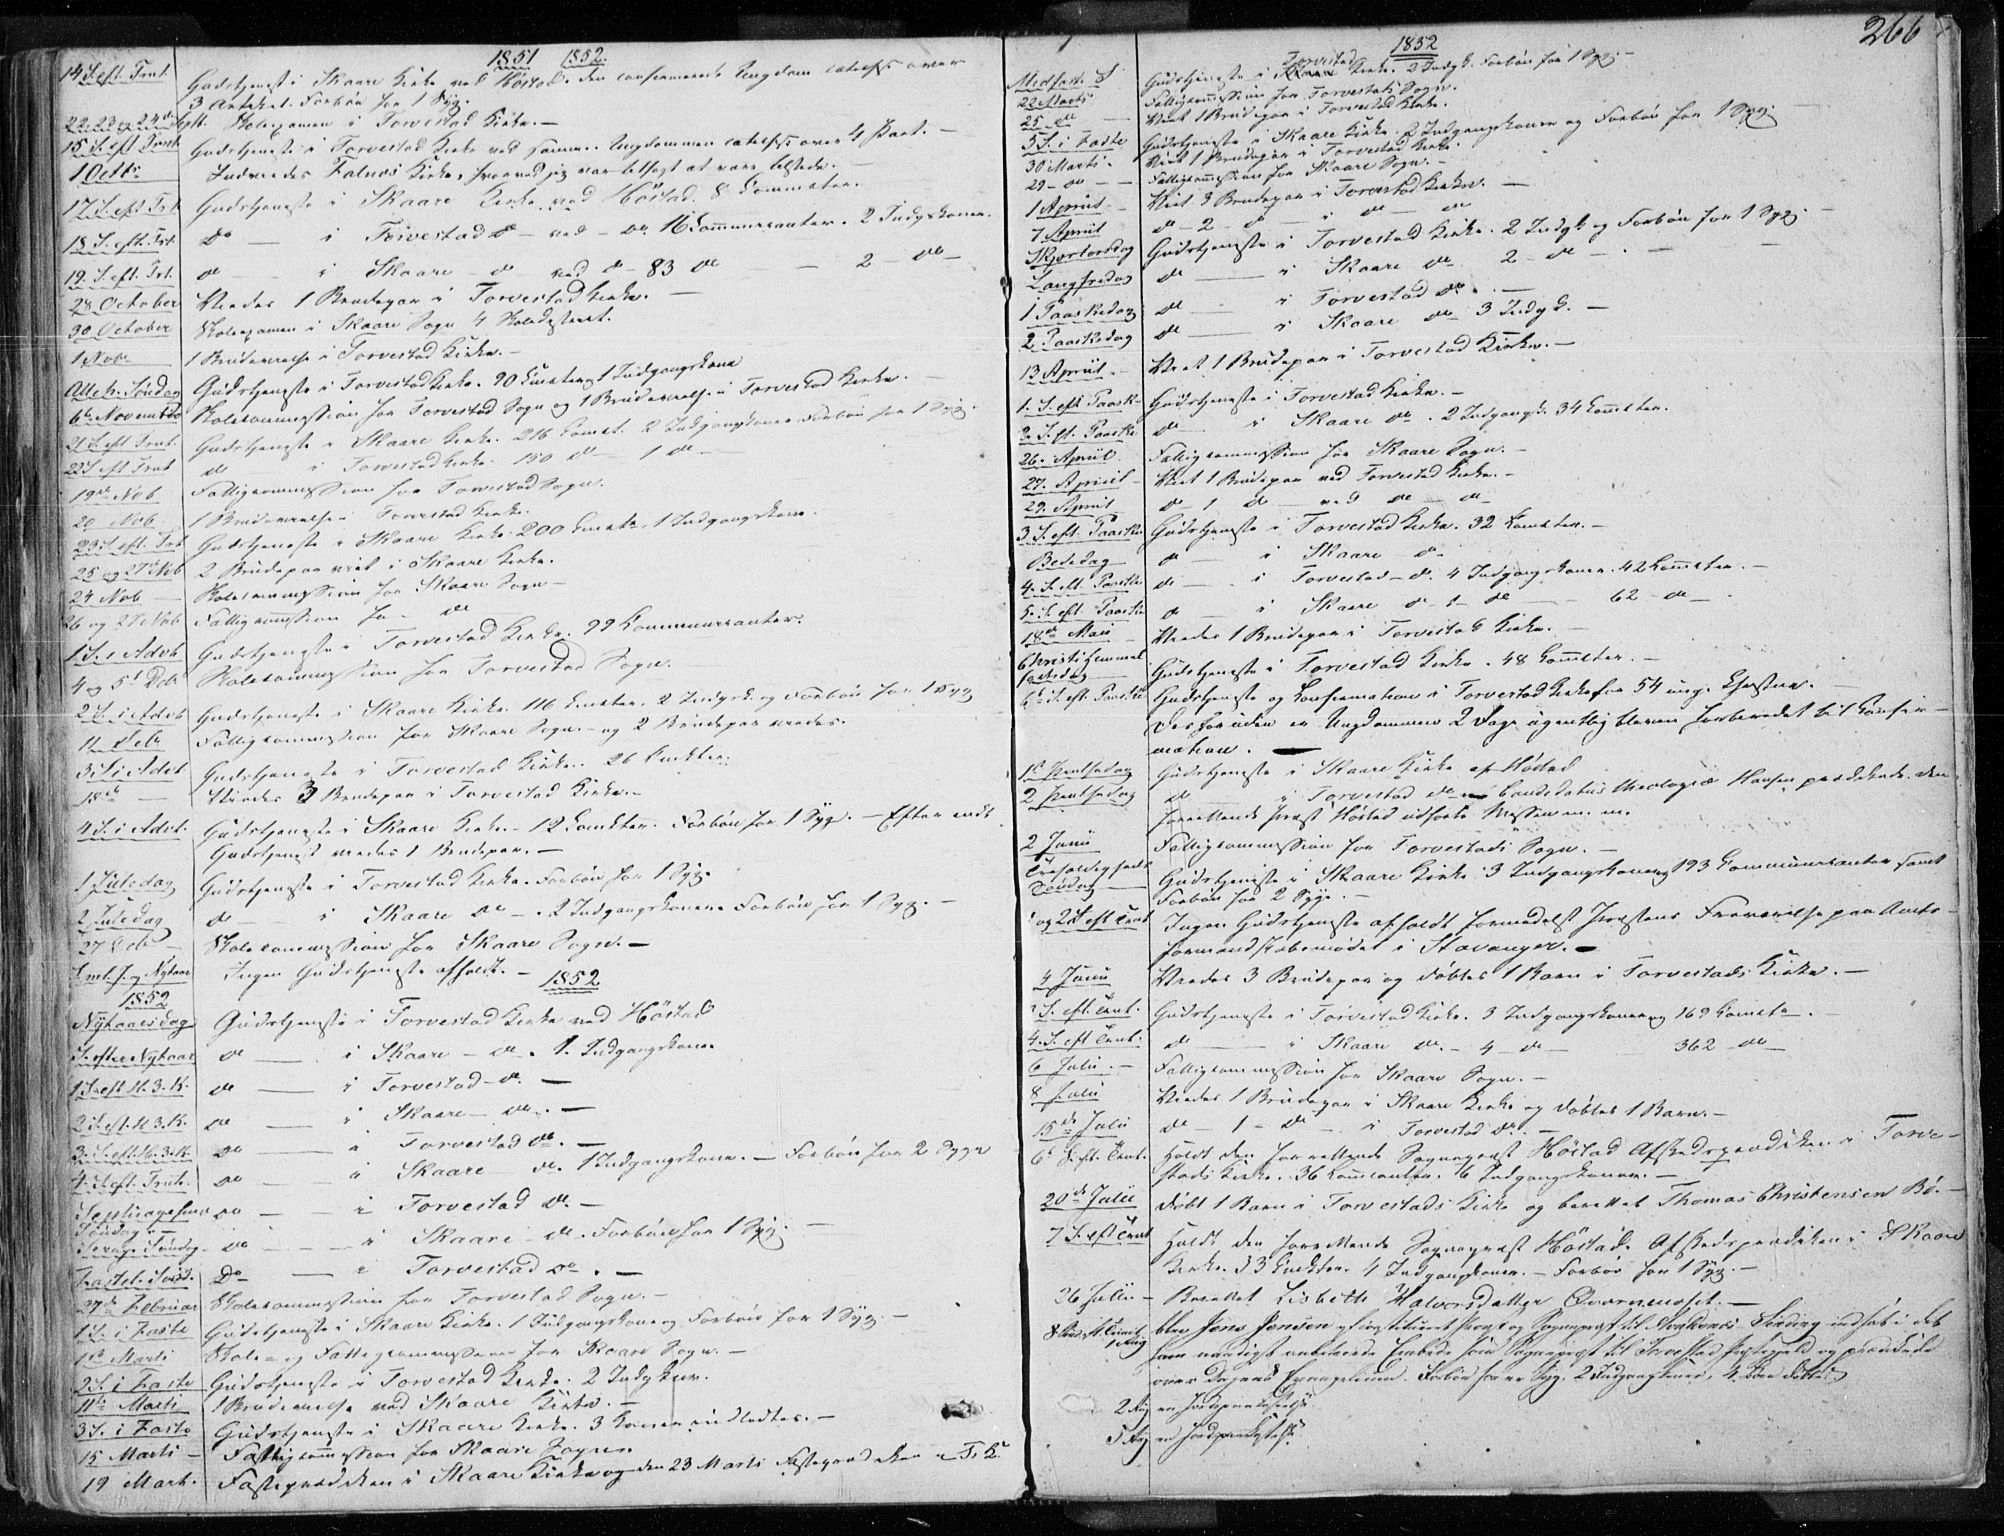 1851 1852.
14 S. eft. Trut. Gudstjeneste i Skaare Kirke ved Höstad. den confirmerede Ungdom catechs over
3 Artikel. Forbön for 1 Syg.
22, 23 og 24de Sept. Skoleexamen i Torvestad Kirke. —
15 S. eft. Trut. Gudstjeneste i Torvestad Kirke ved samme. Ungdommen catechs over 4 Part. —
1 Octbr Indviedes Falnæs Kirke, hvorved jeg var tilsagt at være tilstede. —
17 S. eft. Trt. Gudstjeneste i Skaare Kirke ved Höstad. 8 Commcter.
18 S. eft. Trt. Do — i Torvestad do — ved — do 16 Communicanter. 2 Indgskoner.
19. S. eft. Trt. do — i Skaare — do ved do — 83 do — 2 — do —
28 October Viedes 1 Brudepar i Torvestad Kirke. —
30 October Skoleexamen i Skaare Sogn 4 Skoledistrict.
1 Nobr 1 Brudevielse i Torvestad Kirke. —
Alle h. Söndag Gudstjeneste i Torvestad Kirke. 90 Comcter og 1 Indgangskone
6te November Skolecommission for Torvestad Sogn og 1 Brudevielse i Torvestad Kirke. —
21 S. eft. Trut. Gudstjeneste i Skaare Kirke. 216 Comct. 2 Indgangskoner Forbön for 1 Syg.
22 S. eft Trut do i Torvestad Kirke. 150 do — 1 do —
19de Nob Fattigcommission for Torvestad Sogn.
20 Nob 1 Brudevielse i Torvestad Kirke.
23 S. eft. Trt Gudstjeneste i Skaare Kirke. 200 Comctr. 1 Indgangskone.
25 og 27de Nob 2 Brudepar viet i Skaare Kirke.
24 Nob — Skolecommission for Skaare Sogn —
26 og 27 Nob Fattigcommission for do —
1 S. i Advt Gudstjeneste i Torvestad Kirke. 99 Communicanter.
4 og 5te Debr Skolecommission for Torvestad Sogn.
2 S. i Advt Gudstjeneste i Skaare Kirke. 116 Comcter. 2 Indgsk. og Forbön for 1 Syg
11 Debr Fattigcommission for Skaare Sogn. — og 2 Brudepar viedes.
3 S. i Advt Gudstjeneste i Torvestad Kirke. 26 Comcter.
18de — Viedes 3 Brudepar i Torvestad Kirke. —
4 S. i Advt. Gudstjeneste i Skaare Kirke. — 12 Comcter. Forbön for 1 Syg. — Efter endt
Gudstjenest viedes 1 Brudepar. —
1 Juledag Gudstjeneste i Torvestad Kirke. Forbön for 1 Syg.
2 Juledag do — i Skaare do — . 2 Indgangskoner. Forbön for 1 Syg. —
27 Debr — Skolecommission for Skaare Sogn. —
S. ml. J. og Nytaar Ingen Gudstjeneste afholdt. —
1852
1852
Nytaarsdag Gudstjeneste i Torvestad Kirke ved Höstad
S. efter Nytaar do — i Skaare — do. 1. Indgangskone.
1 S. eft. H. 3. K. do — i Torvestad — do. —
2 S. eft. H. 3. K. do — i Skaare — do. —
3. S. eft. H. 3. K. do — i Torvestad do. —
4. S. eft. Trut. do — i Skaare — do. 1 Indgangskone. — Forbön for 2 Syge
Septuagesima Söndag. do — i Torvestad do. —
Sexag. Söndag do — i Skaare — do. Forbön for 1 Syg. —
Fastel. Sönd. Do — i Torvestad do. —
27de Februar Skolecommission for Torvestad Sogn. —
1 S. i Faste Gudstjeneste i Skaare Kirke. 1 Indgangskone og Forbön for 1 Syg. —
1ste Marti Skole- og Fattigcommission for Skaare Sogn. —
2 S. i Faste Gudstjeneste i Torvestad Kirke. 2 Indgskoner.
11te Marti 1 Brudevielse ved Skaare Kirke. —
3 S. i Faste Gudstjeneste i Skaare Kirke. 3 Koner indledtes. —
15 Marti — Fattigcommission for Skaare Sogn
19 Mart. Fasteprædiken i Skaare Kirke og den 23 Marti Fasteprædiken i T. K.
266
1852
Midfast. S Gudstjeneste i Torvestad Kirke. 2 Indgk. Forbön for 1 Syg. —
22 Marti Fattigcommission for Torvestads Sogn.
25 — do — Viet 1 Brudepar i Torvestad Kirke.
5 S. i Faste Gudstjeneste i Skaare Kirke. 2 Indgangskoner og Forbön for 1 Syg.
30 Marti. Viet 1 Brudepar i Torvestad Kirke.
29 — do — Fattigcommission for Skaare Sogn. —
1 Apriil Viet 3 Brudepar i Torvestad Kirke. —
7 Apriil do — 2 — do — i — do — do
Skjertorsdag Gudstjeneste i Torvestad Kirke. 2 Indgk og Forbön for 1 Syg. —
Langfredag do — i Skaare do — 2 — do — . —
1 Paaskedag do — i Torvestad do. —
2 Paaskedag do — i Skaare do — 3 Indgk. —
13 Apriil. Viet 1 Brudepar i Torvestad Kirke. —
1. S. eft Paask. Gudstjeneste i Torvestad Kirke. —
2. S. eft. Paaske do — i Skaare do. 2 Indgangsk. 34 Comcter.
26. Apriil Fattigcommission for Skaare Sogn. —
27. Apriil — Viet 1 Brudepar ved Torvestad Kirke. —
29. Apriil do 1 do ved do — do —
3. S. eft. Paaske Gudstjeneste i Torvestad Kirke. 32 Comcter. —
Bededag do — i Skaare — do
4. S. eft. Paaske do — i Torvestad — do. 4 Indgangskoner. 42 Comcter. —
5. S. eft. Paaske do — i Skaare do — 1 — do — 62 — do — .
18de Mai Viedes 1 Brudepar i Torvestad Kirke. —
Christi Himmelfartsdag Gudstjeneste i Torvestad Kirke. 48 Comcter. —
6te S. eft. Paaske Gudstjeneste og Confirmation i Torvestad Kirke for 54 unge Christne. —
Desforuden er Ungdommen 2 Dage ugentlig bleven forberedet til Confir-
mation. —
1ste Pintsedag Gudstjeneste i Skaare Kirke af Höstad
2 Pintsedag do — i Torvestad do — Candidatus theologiæ Hansen prædikede, den
forrettende Præst Höstad udförte Messen m. m.
2 Juni Fattigcommission for Torvestads Sogn. —
Trefoldigheds Söndag Gudstjeneste i Skaare Kirke. 3 Indgangskoner og 193 Communicanter samt
Forbön for 2 Syge. —
1 og 2 S. eft Trnt Ingen Gudstjeneste afholdt formedelst Præstens Fraværelse paa Amts-
formandskabsmödet i Stavanger. —
4 Juni Viedes 3 Brudepar og döbtes 1 Barn i Torvestads Kirke. —
3 S. eft. Trnt. Gudstjeneste i Torvestad Kirke. 3 Indgangskoner og 169 Comctr. —
4. S. eft Trnt. do — i Skaare do. — 4 — do — 362 — do —
6 Juli. — Fattigcommission for Skaare Sogn. —
8 Juli Viedes 1 Brudepar i Skaare Kirke og döbtes 1 Barn. —
15de Juli do — 1 — do — i Torvestad do. —
6te S. eft. Trnt. Holdt den forrettende Sognepræst Höstad Afskedsprædiken i Torve-
stads Kirke. 36 Comcanter. 6 Indgangskoner. —
20de Julii Döbt 1 Barn i Torvestads Kirke og berettet Thomas Christensen Bö. —
7 S. eft Trnt Holdt den forrettende Sognepræst Höstad. Afskedsprædiken i Skaare
Kirke. 33 Comcter. 4 Indgangskoner. — Forbön for 1 Syg. —
26 Julii — Berettet Lisbeth Halvorsdatter —
8 Sönd. eft. Trinit. 1 Aug blev Jens Jensen constitueret Provst og Sognepræst til Söndag indsat i det
ham naadigst anbetroede Embede som Sognepræst til Torvestad Præstegjeld og prædikede
over Dagens Evangelium. Forbön for en Syg. 2 Indgangskoner, 4 Börn döbte.
2 Aug en
5 Aug en